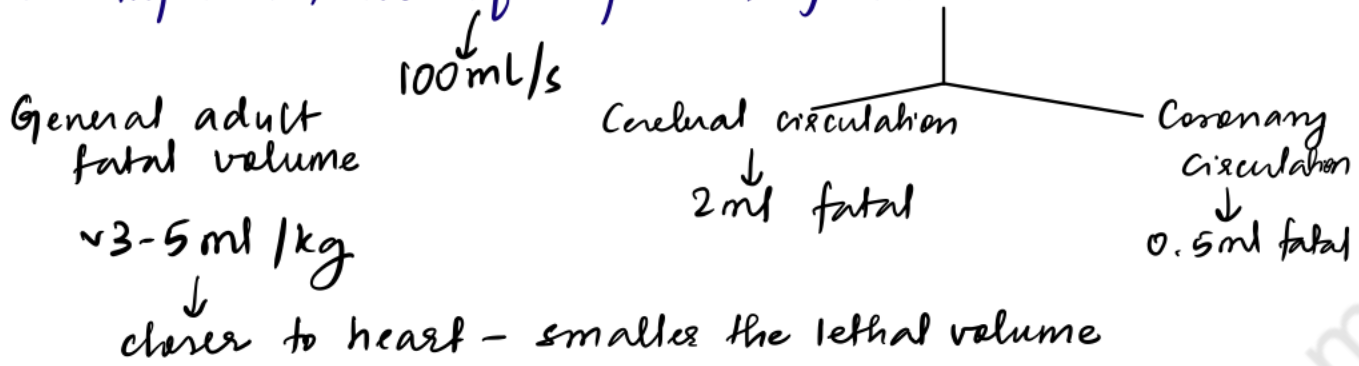 100ml/s
General adult
fatal volume
~3-5 ml /kg
closer to heart - smaller the lethal volume
Cerebral circulation
2ml fatal
Coronary
circulation
0.5ml fatal